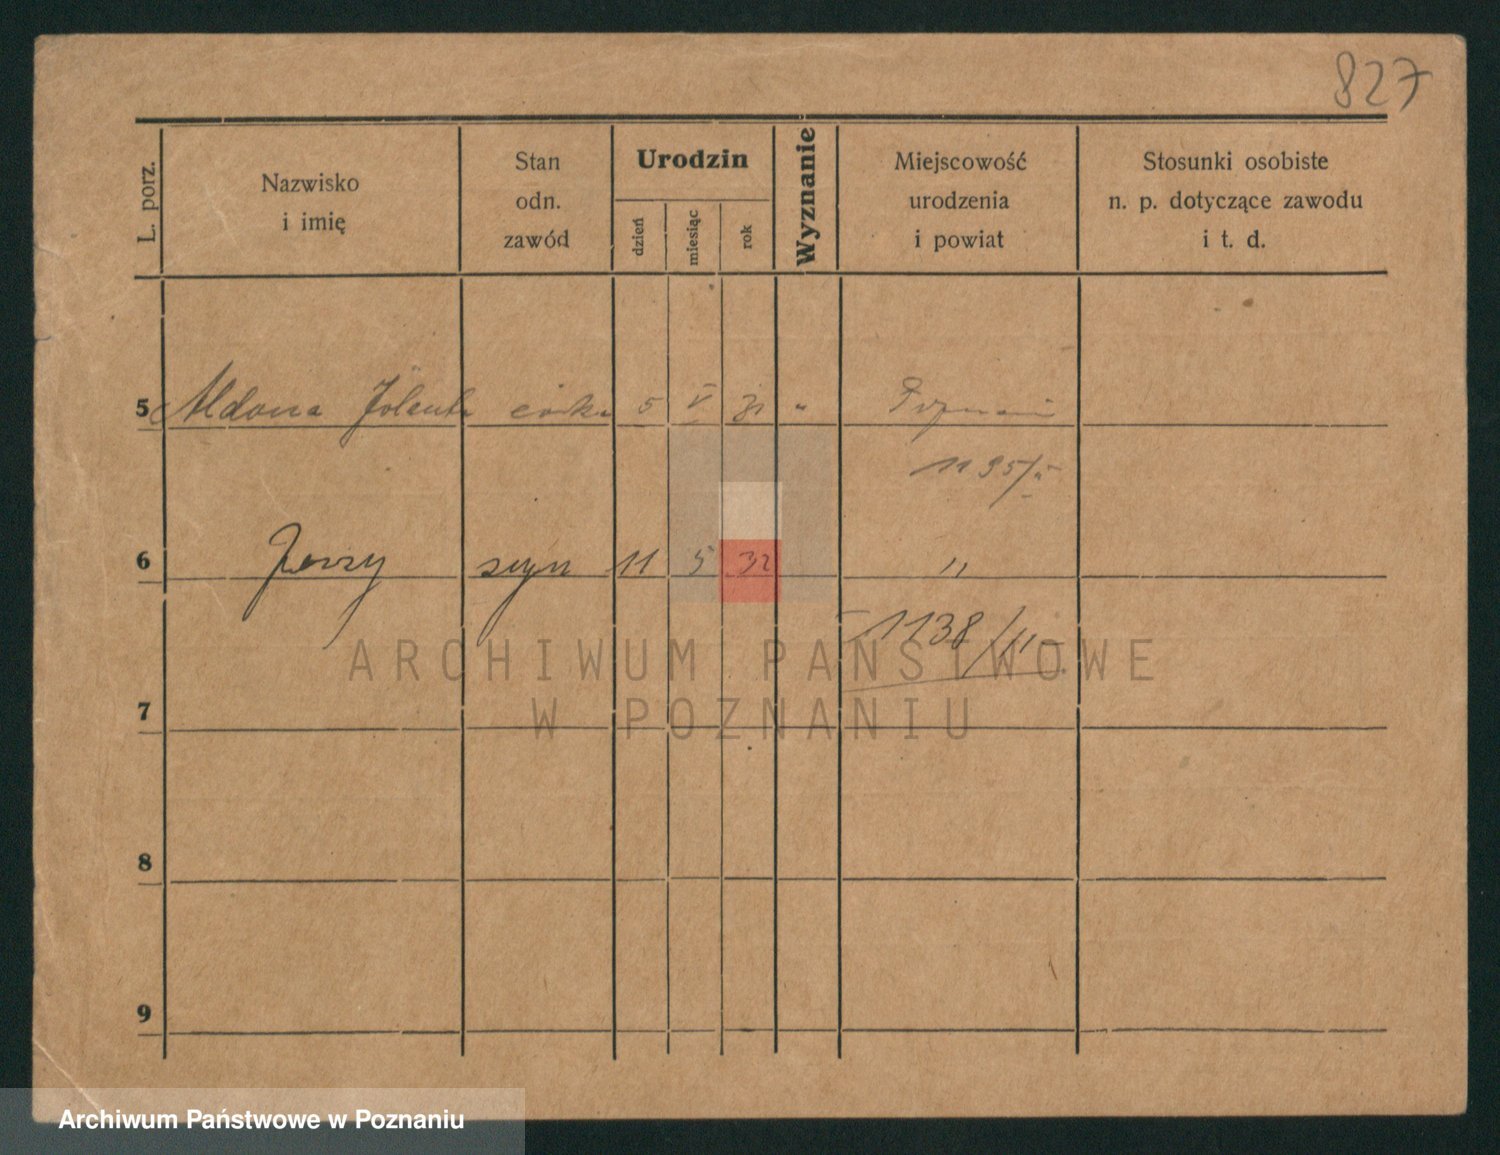 827
L. porz.
Nazwisko
i imię
Stan
odn.
zawód
Urodzin
dzień
miesiąc
rok
Wyznanie
Miejscowość
urodzenia
i powiat
Stosunki osobiste
n. p. dotyczące zawodu
i t. d.
5 Aldona Jolanta córka 5 V 31 " Poznań
6 Jerzy syn 11 5 32 "
1138/II
7
8
9
ARCHIWUM PAŃSTWOWE
W POZNANIU
Archiwum Państwowe w Poznaniu